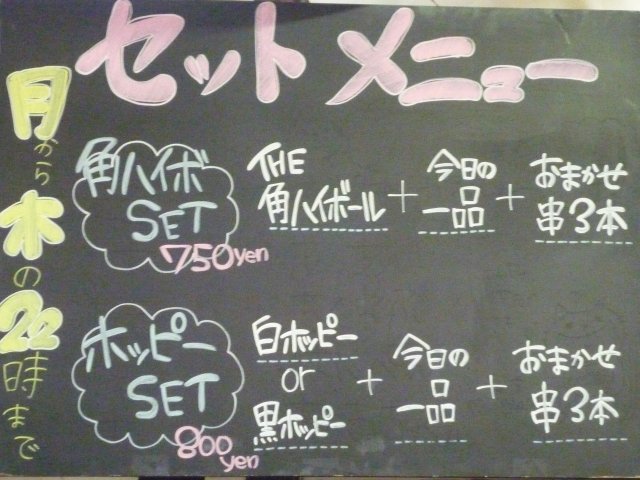 セットメニュー
月から木の22時まで
角ハイボ
SET
750yen
THE
角ハイボール
+
今日の
一品
+
おまかせ
串3本
ホッピー
SET
800
yen
白ホッピー
or
黒ホッピー
+
今日の
一品
+
おまかせ
串3本